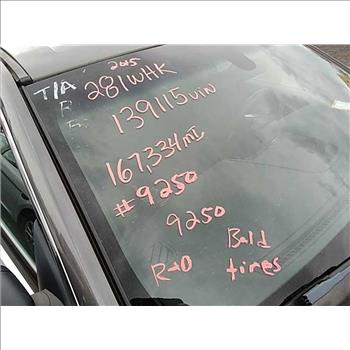 2015
T/A 281WHK
F
139115 VIN
167,334 MI
#9250
9250
Bald
R-0 tires